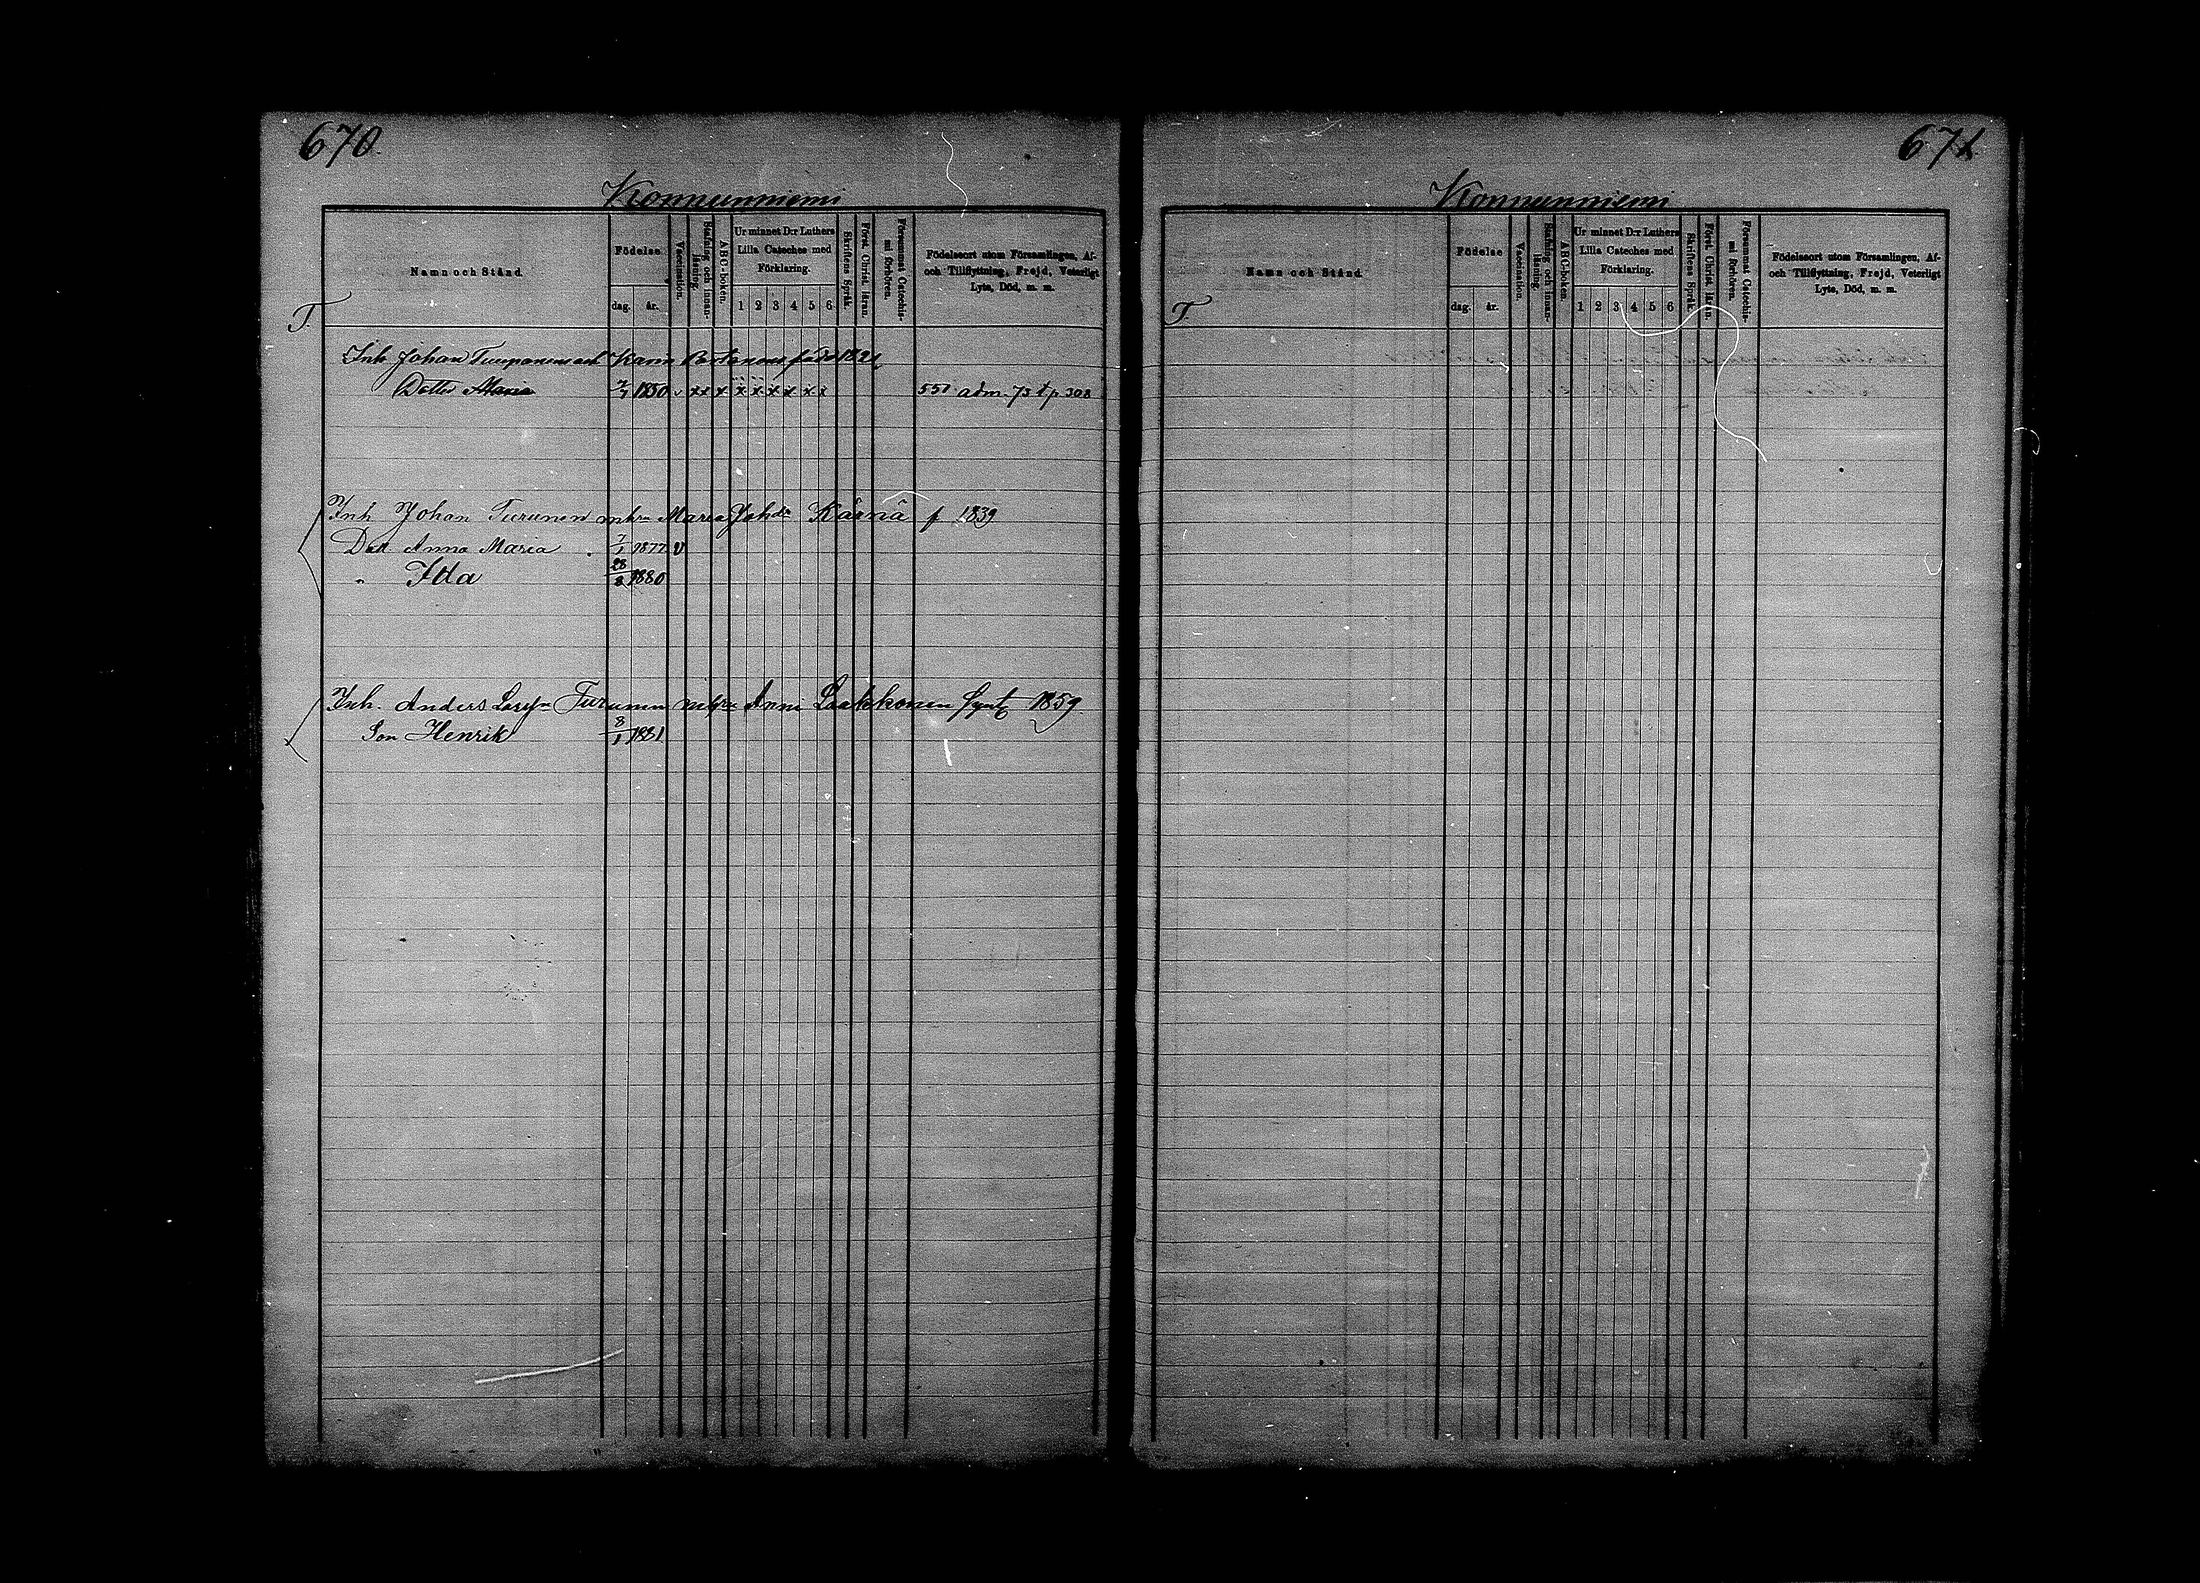 670
Konnunniemi
Namn och Stånd.
Födelse
dag. år.
Vaccination.
Stafning och innan-
läsning.
ABC-boken.
Ur minnet D:r Luthers
Lilla Cateches med
Förklaring.
1 2 3 4 5 6
Skriftens Språk.
Först. Christ. läran.
Försummat Catechis-
mi förhören.
Födelseort utom Församlingen, Af-
och Tillflyttning, Frejd, Veterligt
Lyte, Död, m. m.
T.
Inh Johan och Karin född 1821
Dotter Maria 1850 v x x x x x x x x x 551 adm. 73 tp 308
Inh Johan Turunen m hu Maria Johdr Kärnä f 1839
Dott Anna Maria 7/1 1877 v
" Ida 28/8 1880
Inh. Anders Turunen Anni Laakkonen 1859
Son Henrik 8/1 1881
671
Konnunniemi
Namn och Stånd.
Födelse
dag. år.
Vaccination.
Stafning och innan-
läsning.
ABC-boken.
Ur minnet D:r Luthers
Lilla Cateches med
Förklaring.
1 2 3 4 5 6
Skriftens Språk.
Först. Christ. läran.
Försummat Catechis-
mi förhören.
Födelseort utom Församlingen, Af-
och Tillflyttning, Frejd, Veterligt
Lyte, Död, m. m.
T.